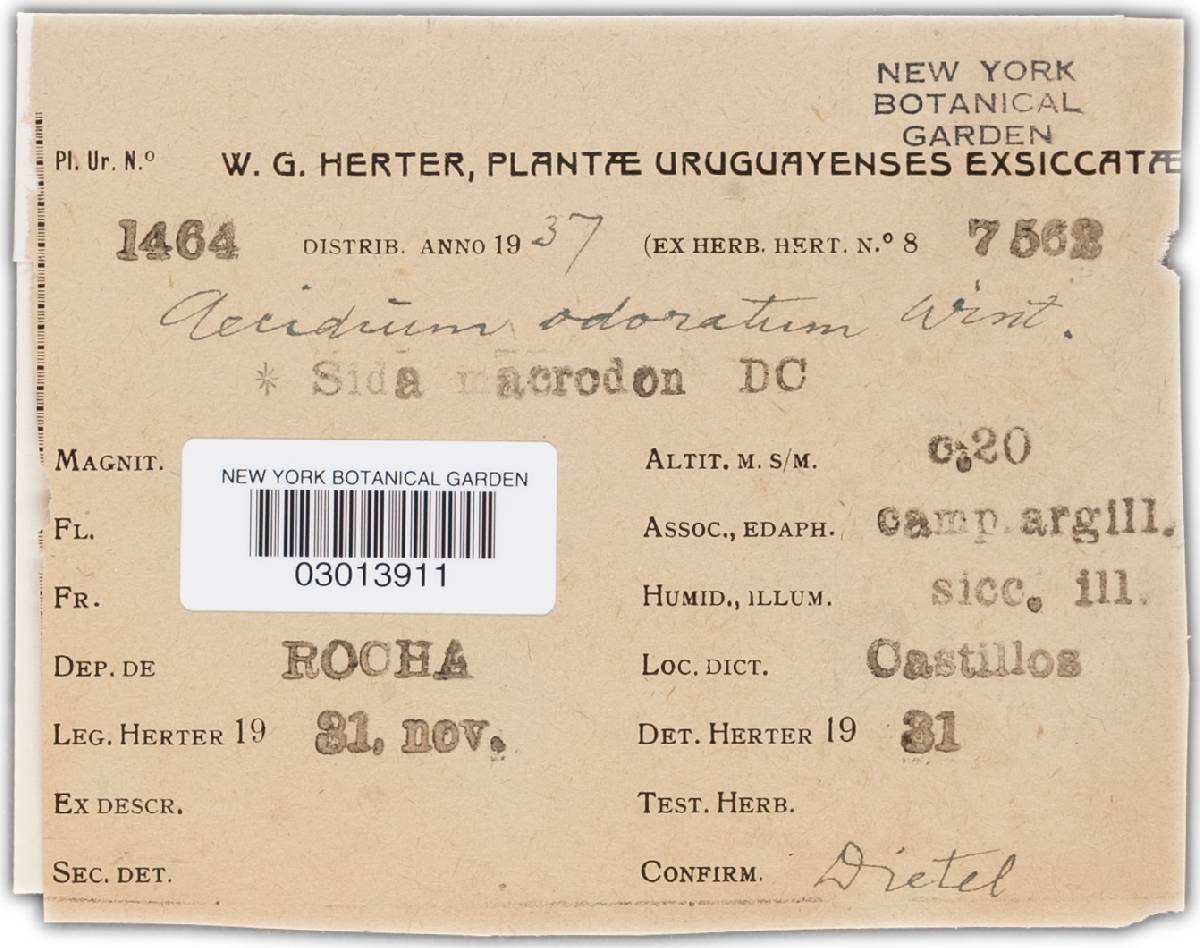 NEW YORK
BOTANICAL
GARDEN
Pl. Ur. N.º W. G. HERTER, PLANTÆ URUGUAYENSES EXSICCATÆ
1464 DISTRIB. ANNO 19 37 (EX HERB. HERT. N.º 8 7562
Aecidium odoratum Wint.
* Sida macrodon DC
MAGNIT. ALTIT. M. S/M. c.20
NEW YORK BOTANICAL GARDEN
03013911
FL. ASSOC., EDAPH. camp.argill.
FR. HUMID., ILLUM. sicc. ill.
DEP. DE ROCHA LOC. DICT. Castillos
LEG. HERTER 19 31. nov. DET. HERTER 19 31
EX DESCR. TEST. HERB.
SEC. DET. CONFIRM. Dietel